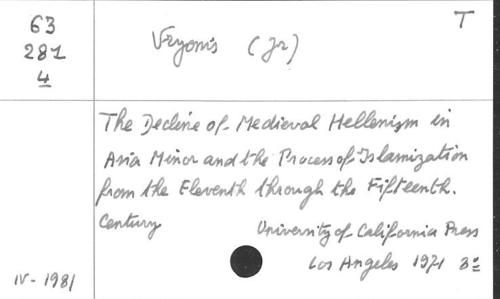 63
281
4
Vryonis (Jr)
T
The Decline of Medieval Hellenism in
Asia Minor and the Process of Islamization
from the Eleventh through the Fifteenth.
Century
University of California Press
Los Angeles 1971 8º
IV-1981